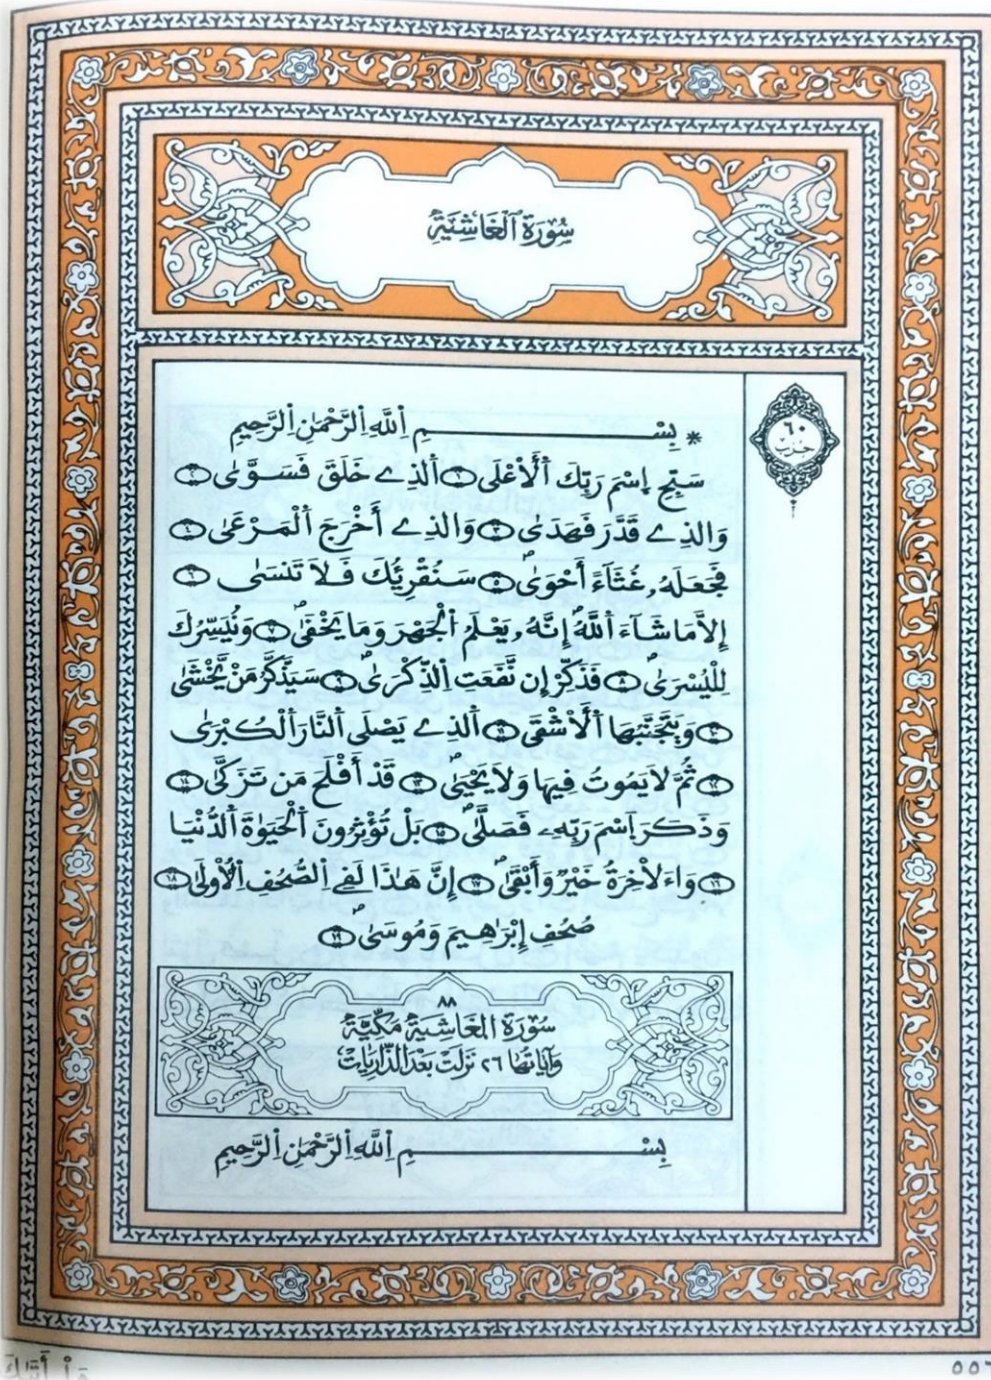 سُورَةُ الْغَاشِيَةِ
٦٠
حزب
* بِسْــــــمِ اِللَّهِ اِلرَّحْمَٰنِ اِلرَّحِيمِ
سَبِّحِ اِسْمَ رَبِّكَ اَلَاعْلَى ١ اَلذِے خَلَقَ فَسَوَّىٰ ٢
وَالذِے قَدَّرَ فَهَدَىٰ ٣ وَالذِے أَخْرَجَ اَلْمَرْعَىٰ ٤
فَجَعَلَهُۥ غُثَآءً أَحْوَىٰ ٥ سَنُقْرِئُكَ فَلَا تَنسَىٰ ٦
إِلَّا مَا شَآءَ اَللَّهُ إِنَّهُۥ يَعْلَمُ اُلْجَهْرَ وَمَا يَخْفَىٰ ٧ وَنُيَسِّرُكَ
لِلْيُسْرَىٰ ٨ فَذَكِّرْ إِن نَّفَعَتِ اِلذِّكْرَىٰ ٩ سَيَذَّكَّرُ مَنْ يَّخْشَىٰ
١٠ وَيَتَجَنَّبُهَا اَلَاشْقَى ١١ اَلذِے يَصْلَى اَلنَّارَ اَلْكُبْرَىٰ
١٢ ثُمَّ لَا يَمُوتُ فِيهَا وَلَا يَحْيَىٰ ١٣ قَدْ أَفْلَحَ مَن تَزَكَّىٰ ١٤
وَذَكَرَ اَسْمَ رَبِّهِۦ فَصَلَّىٰ ١٥ بَلْ تُؤْثِرُونَ اَلْحَيَوٰةَ اَلدُّنْيَا
١٦ وَاءَلَاخِرَةُ خَيْرٌ وَأَبْقَىٰ ١٧ إِنَّ هَٰذَا لَفِے اِلصُّحُفِ اِلُاولَىٰ ١٨
صُحُفِ إِبْرَٰهِيمَ وَمُوسَىٰ ١٩
٨٨
سُورَةُ الْغَاشِيَةِ مَكِّيَّةٌ
وَآيَاتُهَا ٢٦ نَزَلَتْ بَعْدَ الذَّارِيَاتِ
بِسْــــــمِ اِللَّهِ اِلرَّحْمَٰنِ اِلرَّحِيمِ